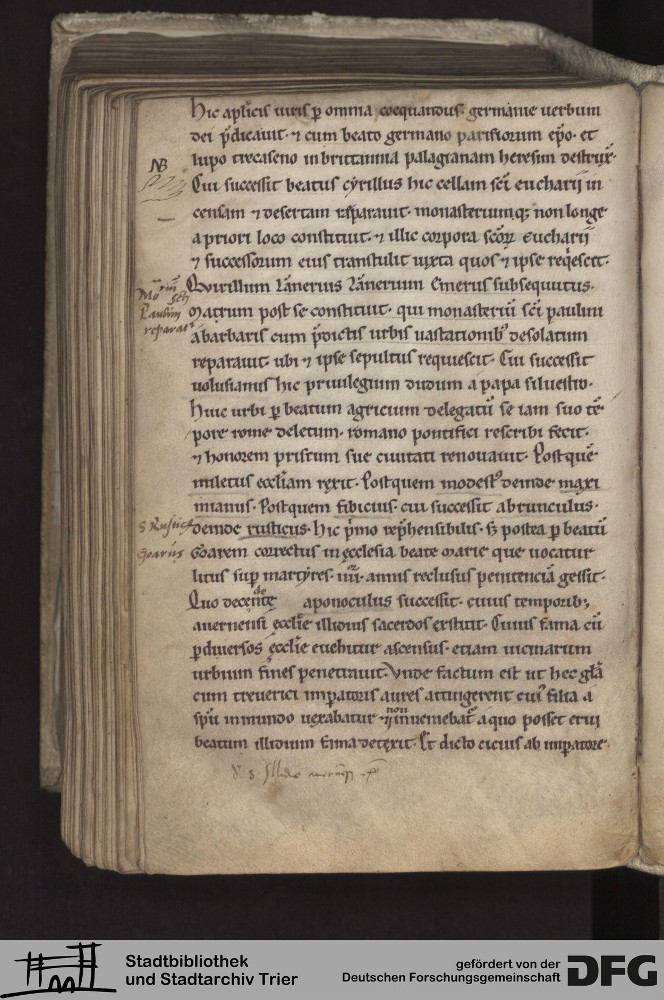 hic aplicis uiris ꝑ omnia coequandus· germanie uerbum
dei p̄dicauit· ⁊ cum beato germano parisiorum ep̄o· et
lupo trecaseno in brittannia palagianam heresim destrux̄·
NB
Cui successit beatus cyrillus hic cellam sc̄i eucharii in
censam ⁊ desertam rep̄arauit· monasteriumq; non longe
a priori loco constituit· ⁊ illic corpora sc̄oꝝ Eucharii
⁊ successorum eius transtulit iuxta quos ⁊ ipse req̇escit·
Quirillum Iāneruis Iānerium Emerus subsequutus·
Marum post se constituit· qui monasteriū sc̄i paulini
Paulini
reparat
a barbaris cum p̄dictis urbis uastationib᾽ desolatum
reparauit ubi ⁊ ipse sepultus requiescit· Cui successit
uolusianus hic priuilegium dudum a papa siluestro·
Huic urbi ꝑ beatum agricium delegatū se iam suo tē
pore rome deletum· romano pontifici rescribi fecit·
⁊ honorem pristinum sue ciuitati renouauit· Postquē
miletus eccl̄iam rexit· Postquem modest᾽ deinde maxi
mianus· Postquem fibicius· cui successit abrunculus·
S Rustic
deinde rusticus· Hic p̄mo rep̄hensibilis· s; postea ꝑ beatū
Goarius
Goarem correctus in ęcclesia beate marie que uocatur
litus sup̄ martyres· iiii· annis reclusus penitenciā gessit·
Quo decente de aponoculus successit· cuius temporib;
auernensi eccl̄ie illidius sacerdos exstitit· Cuius fama cū
ꝑ diuersos ęccl̄ie eueheretur ascensus· etiam uicinarum
urbium fines penetrauit· Vnde factum est ut hec gl̄a
cum treuerici imp̄atoris aures attingerent cui᾽ filia a
sp̄u inmundo uexabatur ⁊ non inueniebat᾽ a quo posset erui
beatum illidium fama detexit· Et dicto citius ab imp̄atore·
Stadtbibliothek
und Stadtarchiv Trier
gefördert von der
Deutschen Forschungsgemeinschaft
DFG